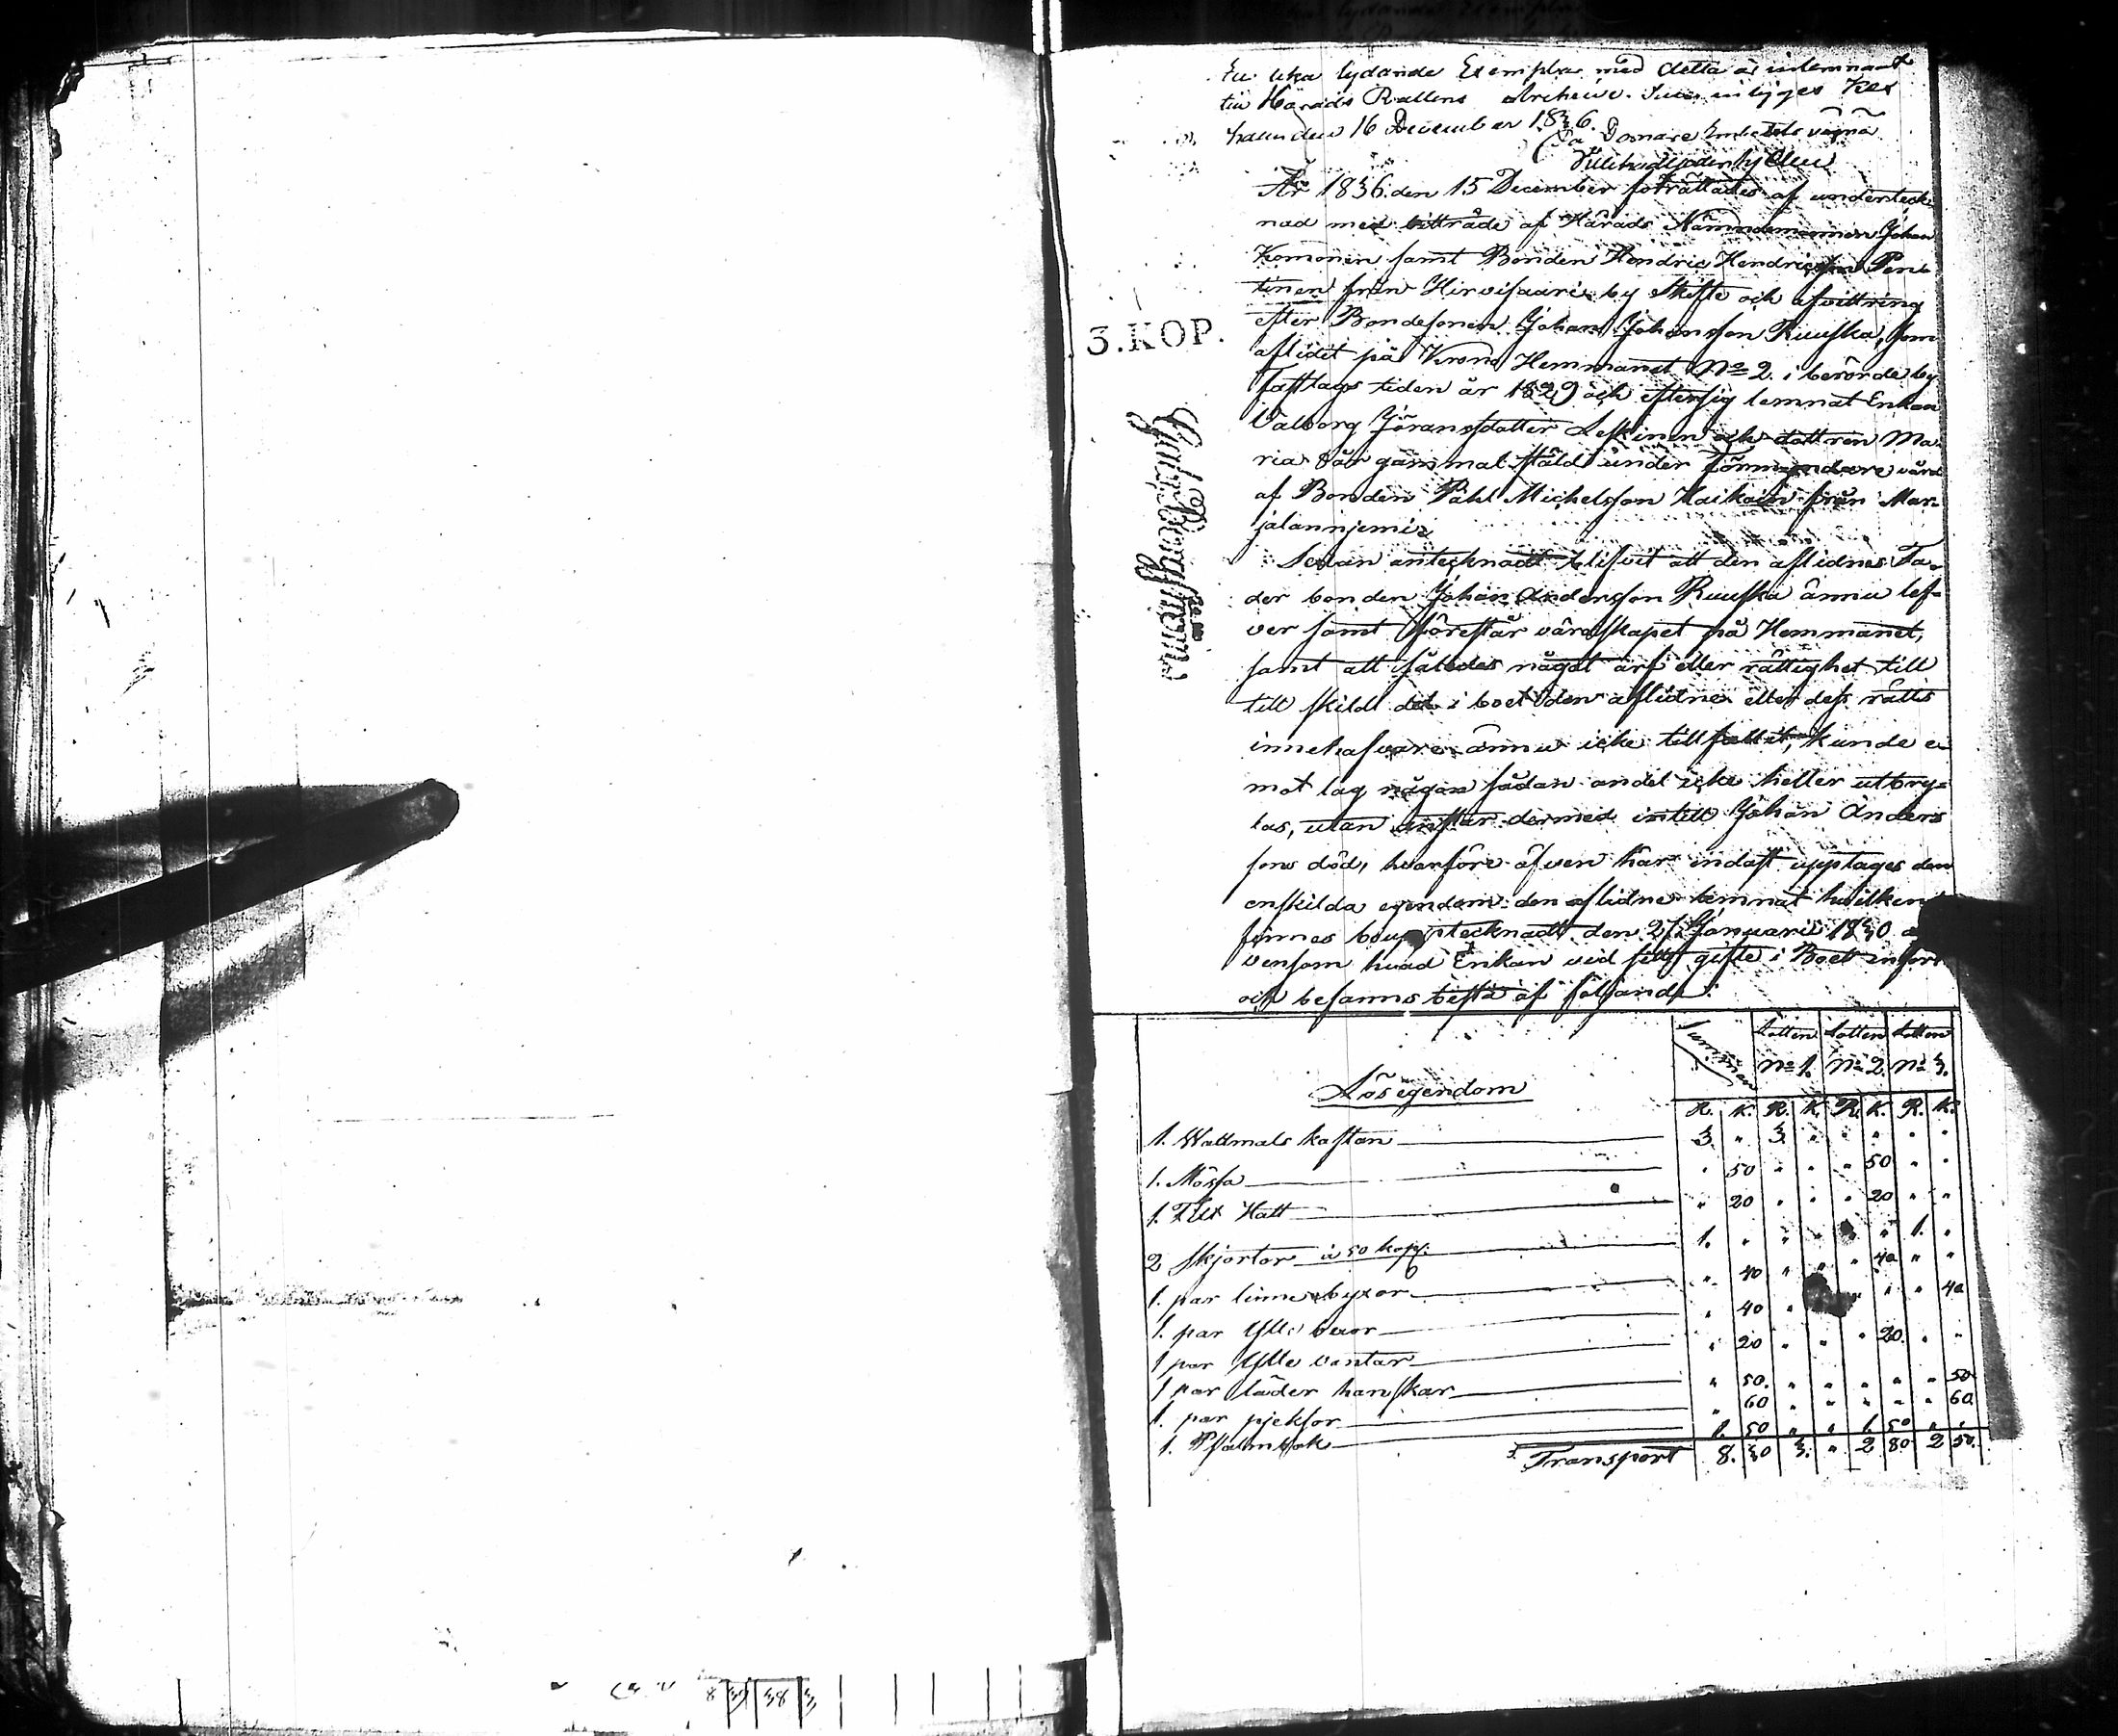 En lika lydande Exemplar med detta är inlemnadt
till Härads Rättens Archive.
den 16 December 1836.
Domare Embetets vägna
År 1836 den 15 December förrättades af underteck-
nad med biträde af Härads Nämndemannen Johan
Komonen samt Bonden Hendric Hendricsson Pent-
tinen från Hirvisaari by Skifte och afvittring
efter Bondesonen Johan Johansson Ruuska, som
aflidit på Krono Hemmanet No 2. i berörde by
Fastlags tiden år 1829 och efter sig lemnat Enkan
Valborg Jöransdotter Leskinen och dottren Ma-
ria 8 år gammal stäld under Förmyndare vård
af Bonden Påhl Michelsson Haikain från Mar-
jalanniemi.
Sedan antecknadt blifvit att den aflidnes Fa-
der bonden Johan Andersson Ruuska ännu lef-
ver samt förestår värdskapet på Hemmanet,
samt att således något arf eller rättighet till
till skild del i boet den aflidne eller dess rätts
innehafvare ännu icke tillfallit, kunde e-
mot lag någon sådan andel icke heller utbry-
tas, utan anstår dermed intill Johan Anders
sons död, hvarföre äfven här endast upptages den
enskilda egendom den aflidne lemnat hvilken
finnes bouptecknadt den 27 Januarii 1830
vensom hvad Enkan vid sitt gifte i Boet infört
och befanns bestå af följande:
3. KOP.
Summan Lotten No 1. Lotten No 2. Lotten No 3.
Lösegendom
R. K. R. K. R. K. R. K.
1. Wallmals kaftan 3. " 3. " " " " "
1. Mössa " 50 " " " 50 " "
1. Filt Hatt " 20 " " " 20 " "
2 Skjortor à 50 kop. 1. " " " " " 1. "
1. par linne byxor " 40 " " " 40 " "
1. par Ylle byxor " 40 " " " " 40
1 par Ylle vantar " 20 " " " 20. " "
1 par läder hanskar " 50. " " " " " 50
1. par pjeksor " 60 " " " " " 60
1. Psalmbok 1. 50 " " 1. 50 " "
Transport 8. 30 3. " 2 80 2 50.